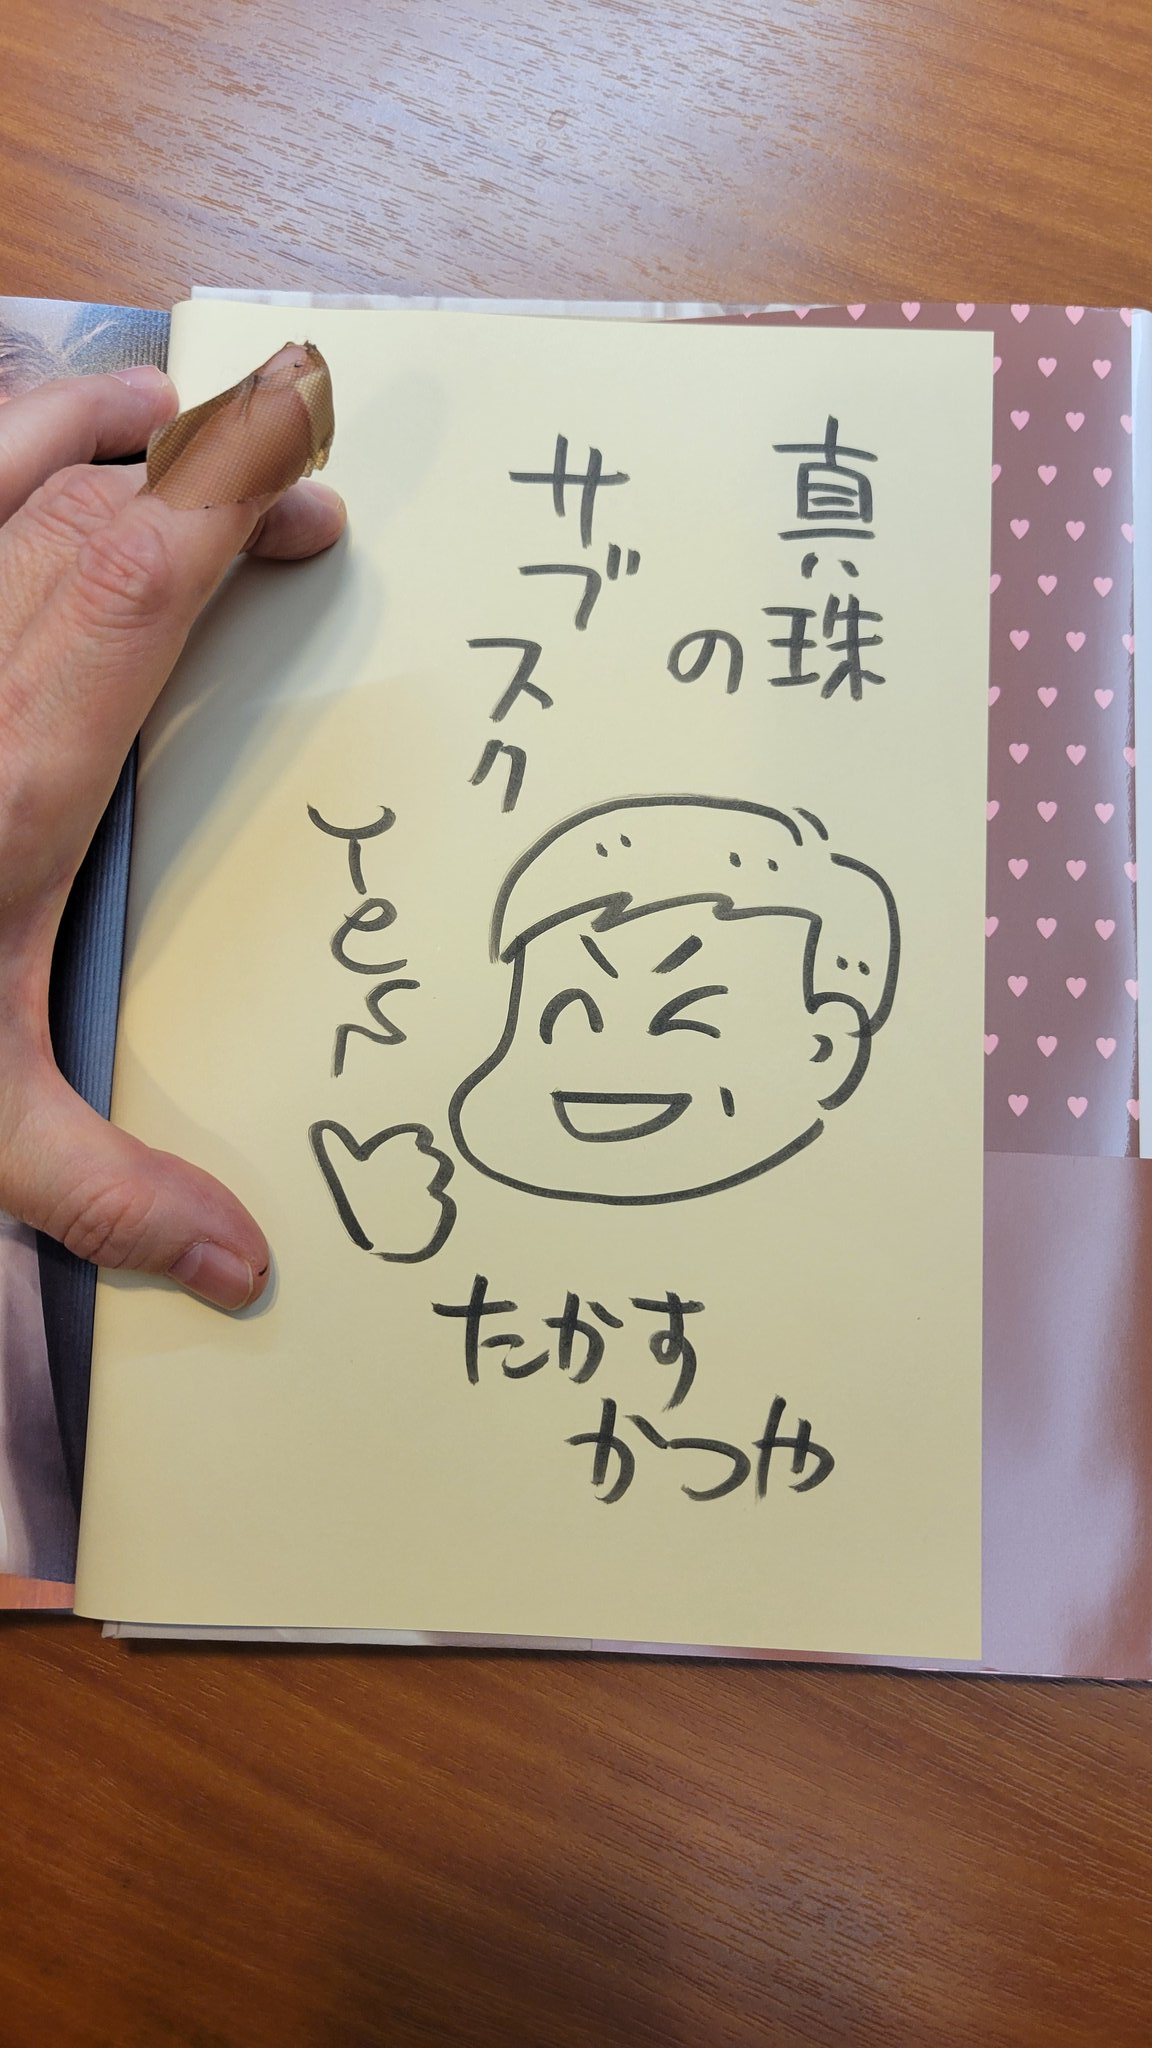 真珠
の
サブスク
Yes
たかす
かつや